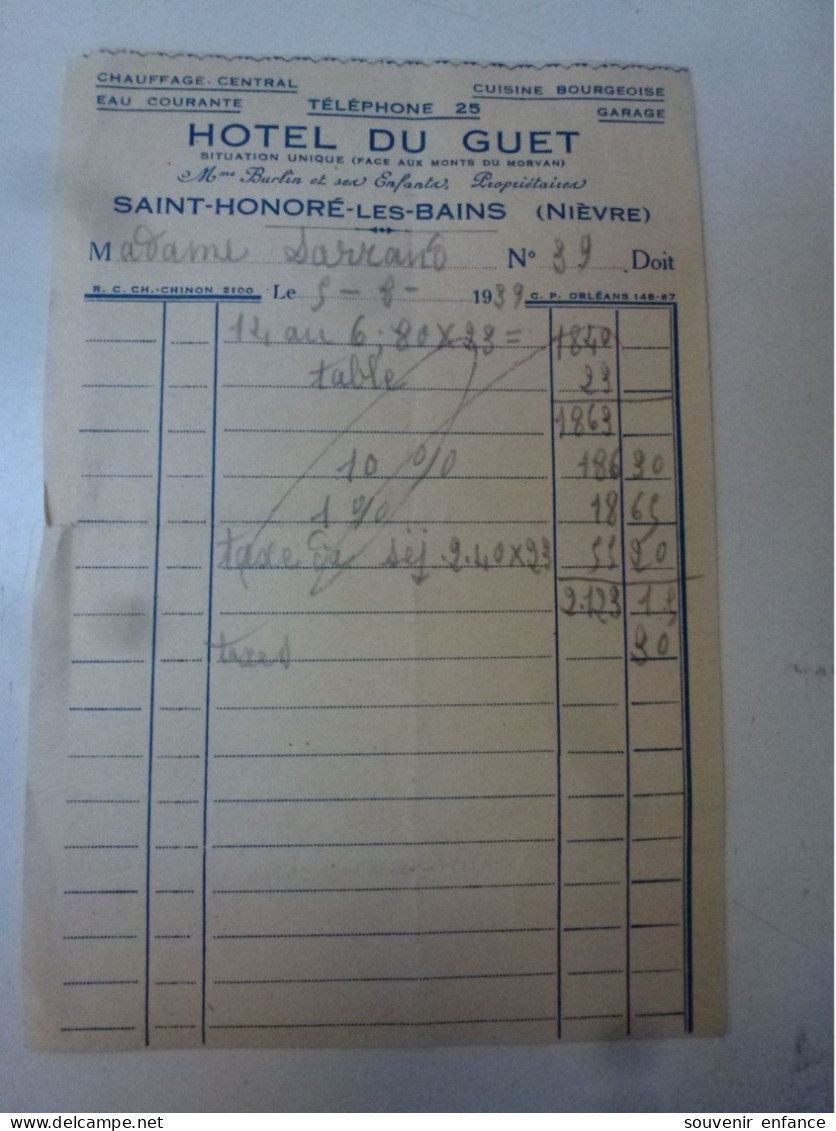 CHAUFFAGE CENTRAL CUISINE BOURGEOISE
EAU COURANTE TÉLÉPHONE 25 GARAGE
HOTEL DU GUET
SITUATION UNIQUE (FACE AUX MONTS DU MORVAN)
Mme Burlin et ses Enfants, Propriétaires
SAINT-HONORÉ-LES-BAINS (NIÈVRE)
Madame N° 39 Doit
R. C. CH.-CHINON 2100 Le 5-8- 1939 C. P. ORLÉANS 148-67
14 au 6; 80x23= 1840
table 23
1863
10 % 186 30
1 % 18 65
taxe séj. 2.40x23 55 20
2.123 15
taxes 30
souvenir enfance